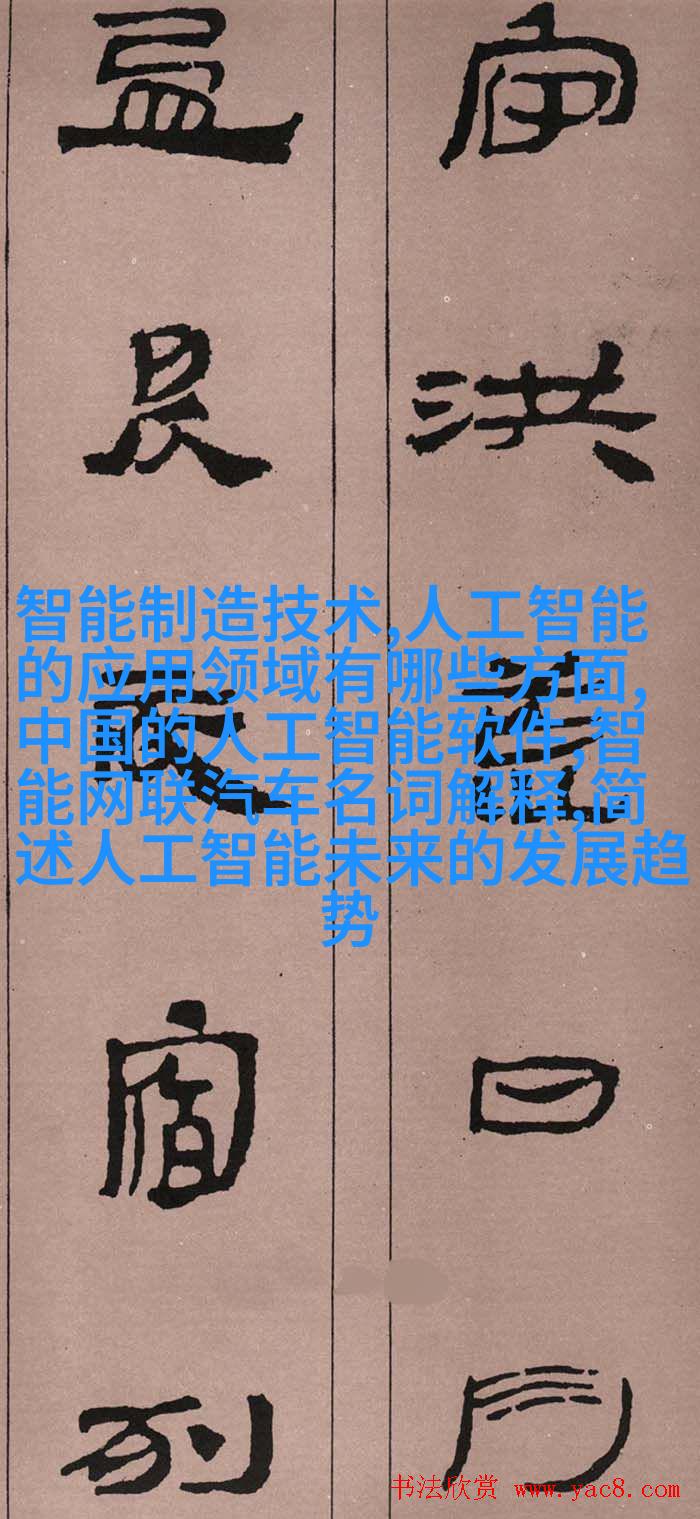 宙洪荒日月
盈昃辰宿列
智能制造技术,人工智能
的应用领域有哪些方面,
中国的人工智能软件,智
能网联汽车名词解释,简
述人工智能未来的发展趋
势
书法欣赏 www.yac8.com